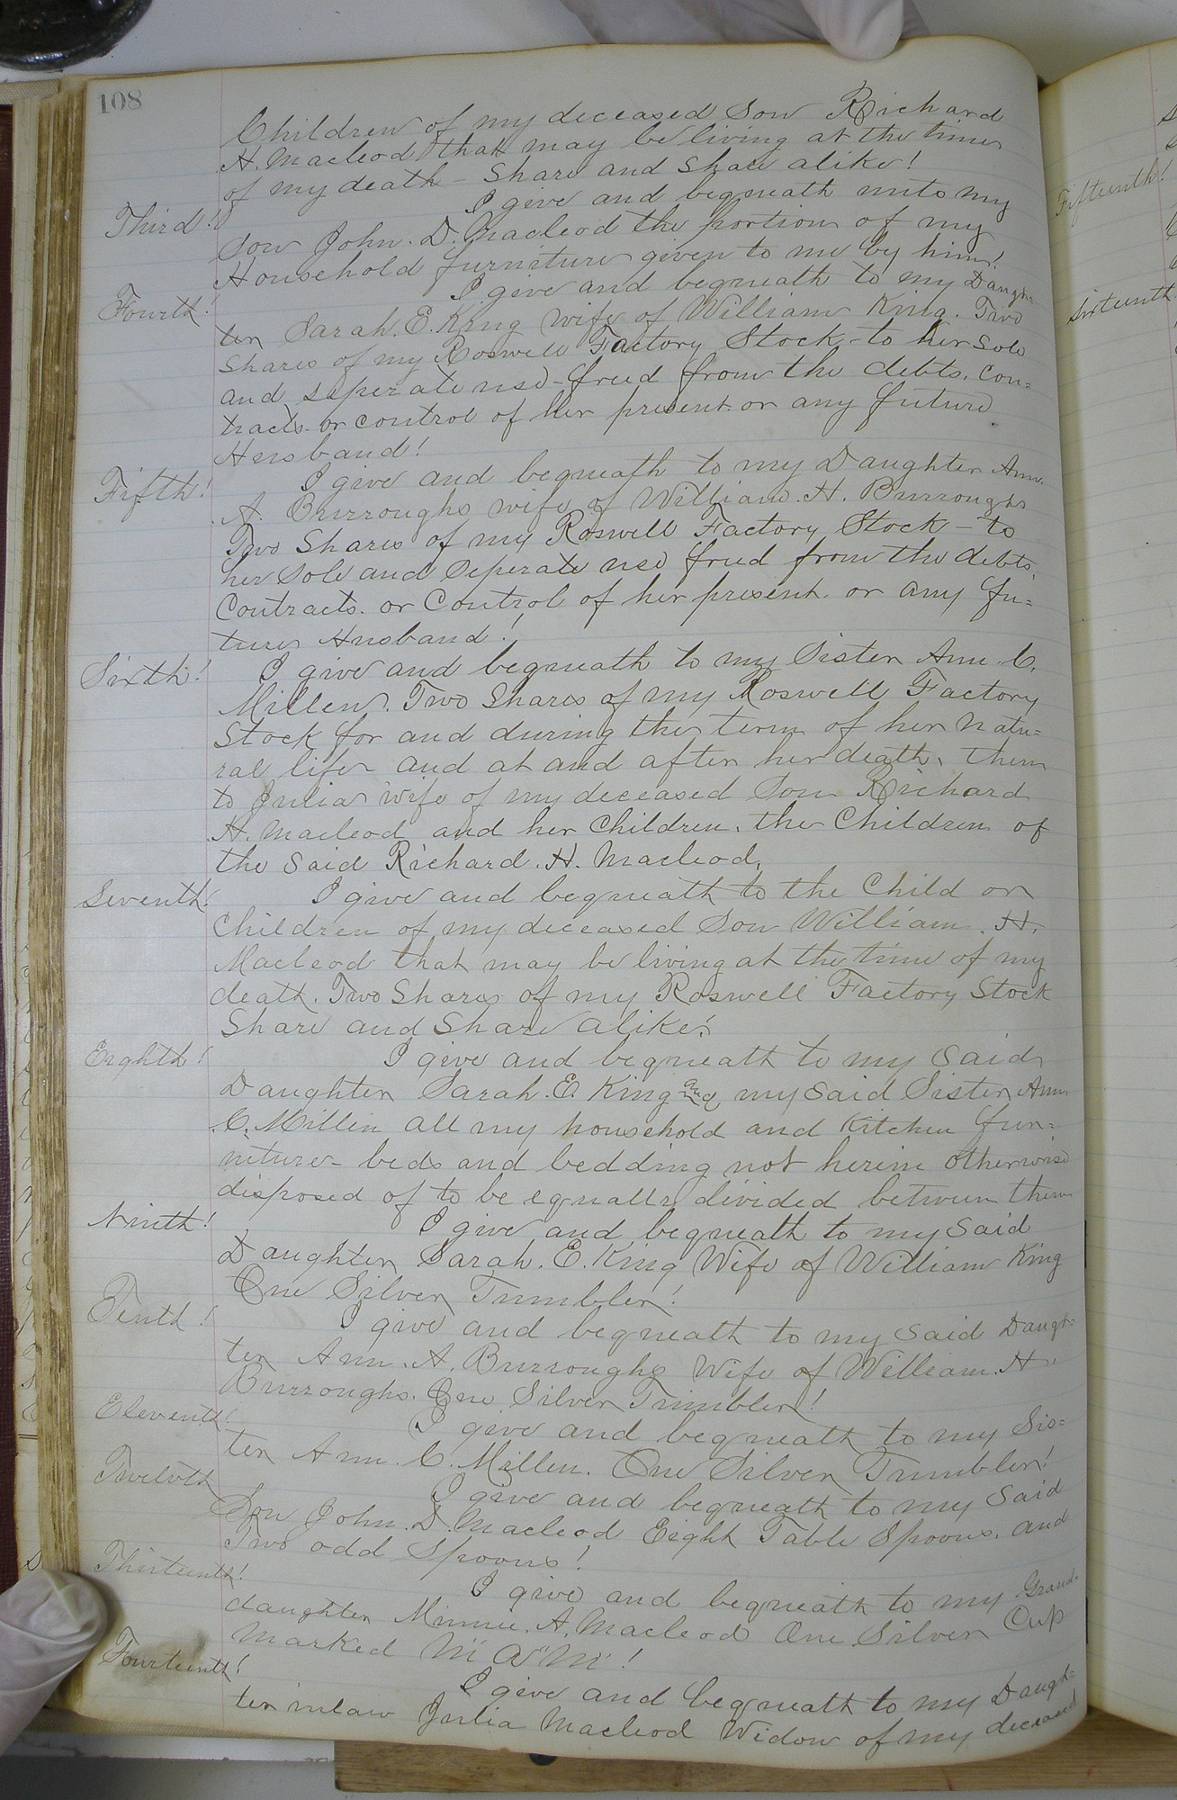 108
Children of my deceased Son Richard
H. Macleod that may be living at the time
of my death - Share and Share alike!
Third! I give and bequeath unto my
Son John. D. Macleod the portion of my
Household furniture given to me by him!
Fourth! I give and bequeath to my Daugh-
ter Sarah. E. King wife of William King. Two
Shares of my Roswell Factory Stock - to her Sole
and seperate use - freed from the debts. Con=
tracts or control of her present or any future
Husband!
Fifth! I give and bequeath to my Daughter Ann.
A. Burroughs wife of William. H. Burroughs
Two Shares of my Roswell Factory Stock - to
her Sole and Seperate use freed from the debts.
Contracts. or Control of her present. or any fu=
ture Husband!
Sixth! I give and bequeath to my Sister Ann. C.
Millen. Two Shares of my Roswell Factory
Stock for and during the term of her natu=
ral life - and at and after her death, then
to Julia wife of my deceased Son Richard
H. Macleod and her Children. the Children of
the Said Richard. H. Macleod.
Seventh! I give and bequeath to the Child or
Children of my deceased Son William. H.
Macleod that may be living at the time of my
death. Two Shares of my Roswell Factory Stock
Share and Share alike!
Eighth! I give and bequeath to my Said
Daughter Sarah. E. King and my Said Sister Ann
C. Millen all my household and Kitchen fur=
niture - beds and bedding not herein otherwise
disposed of to be equally divided between them
Ninth! I give and bequeath to my Said
Daughter Sarah. E. King Wife of William King
One Silver Tumbler!
Tenth! I give and bequeath to my Said Daugh=
ter Ann. A. Burroughs Wife of William. H.
Burroughs. One Silver Tumbler!
Eleventh! I give and bequeath to my Sis=
ter Ann. C. Millen. One Silver Tumbler!
Twelvth I give and bequeath to my Said
Son John. D. Macleod Eight Table Spoons. and
Two odd Spoons!
Thirteenth! I give and bequeath to my Grand-
daughter Minnie. A. Macleod One Silver Cup
Marked M" A" M"!
Fourteenth! I give and bequeath to my Daugh=
ter inlaw Julia Macleod Widow of my deceased
Fifteenth!
Sixteenth